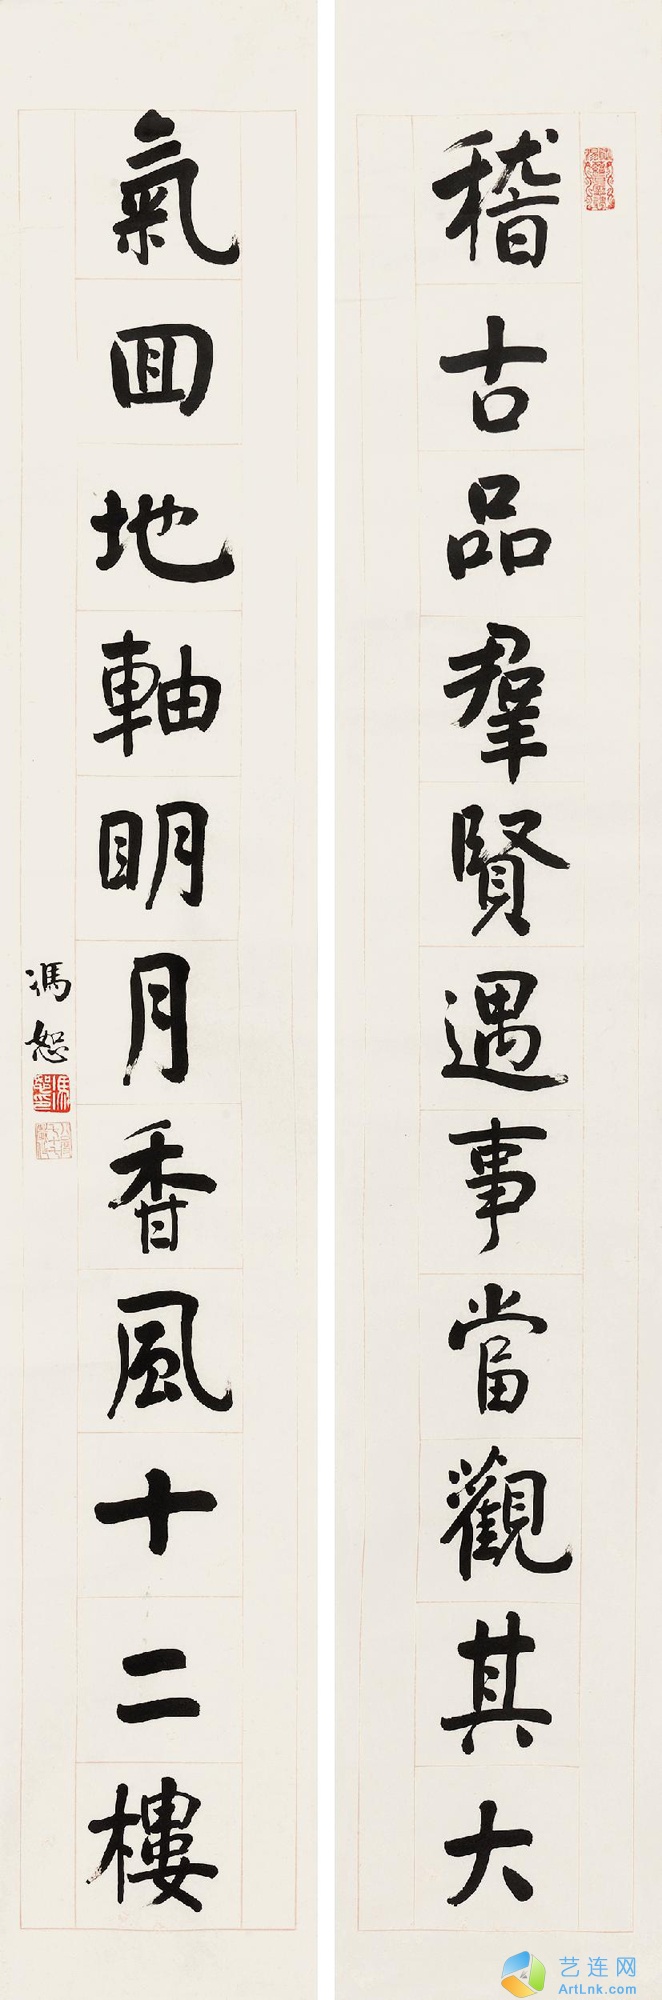 稽古品羣賢遇事當觀其大
氣囬地軸明月香風十二樓
馮恕
艺连网
ArtLnk.com